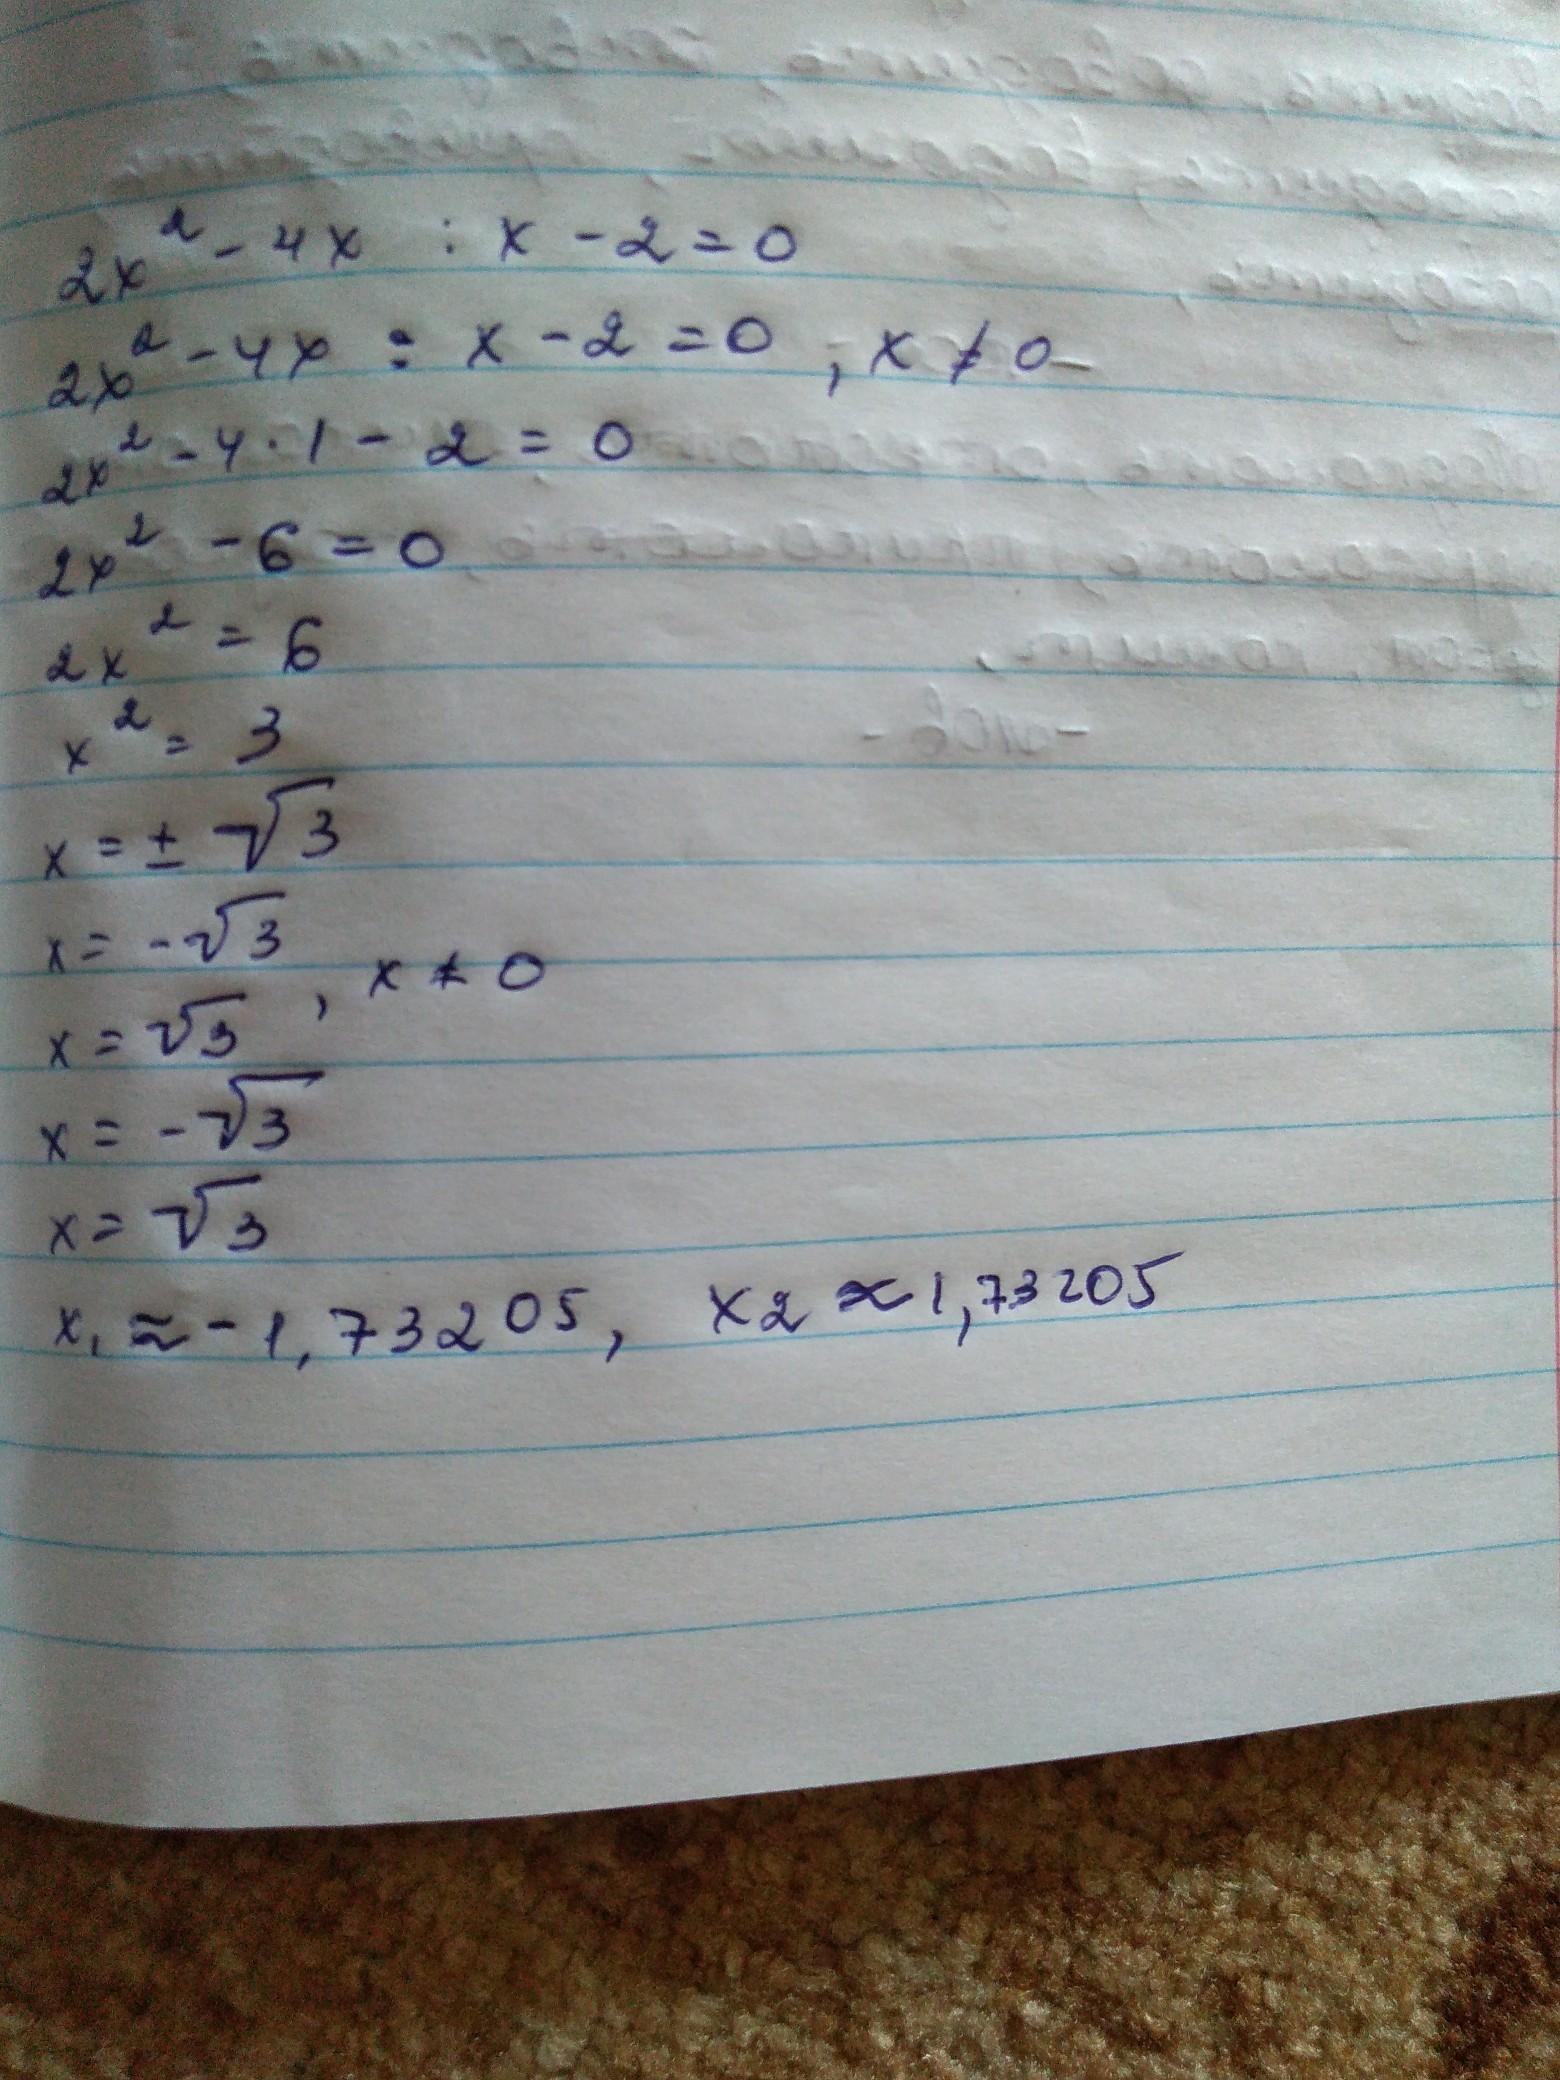 2x² - 4x : x - 2 = 0
2x² - 4x : x - 2 = 0 , x ≠ 0
2x² - 4 · 1 - 2 = 0
2x² - 6 = 0
2x² = 6
x² = 3
x = ± √3
x = -√3
x = √3 , x ≠ 0
x = -√3
x = √3
x₁ ≈ -1,73205, x2 ≈ 1,73205